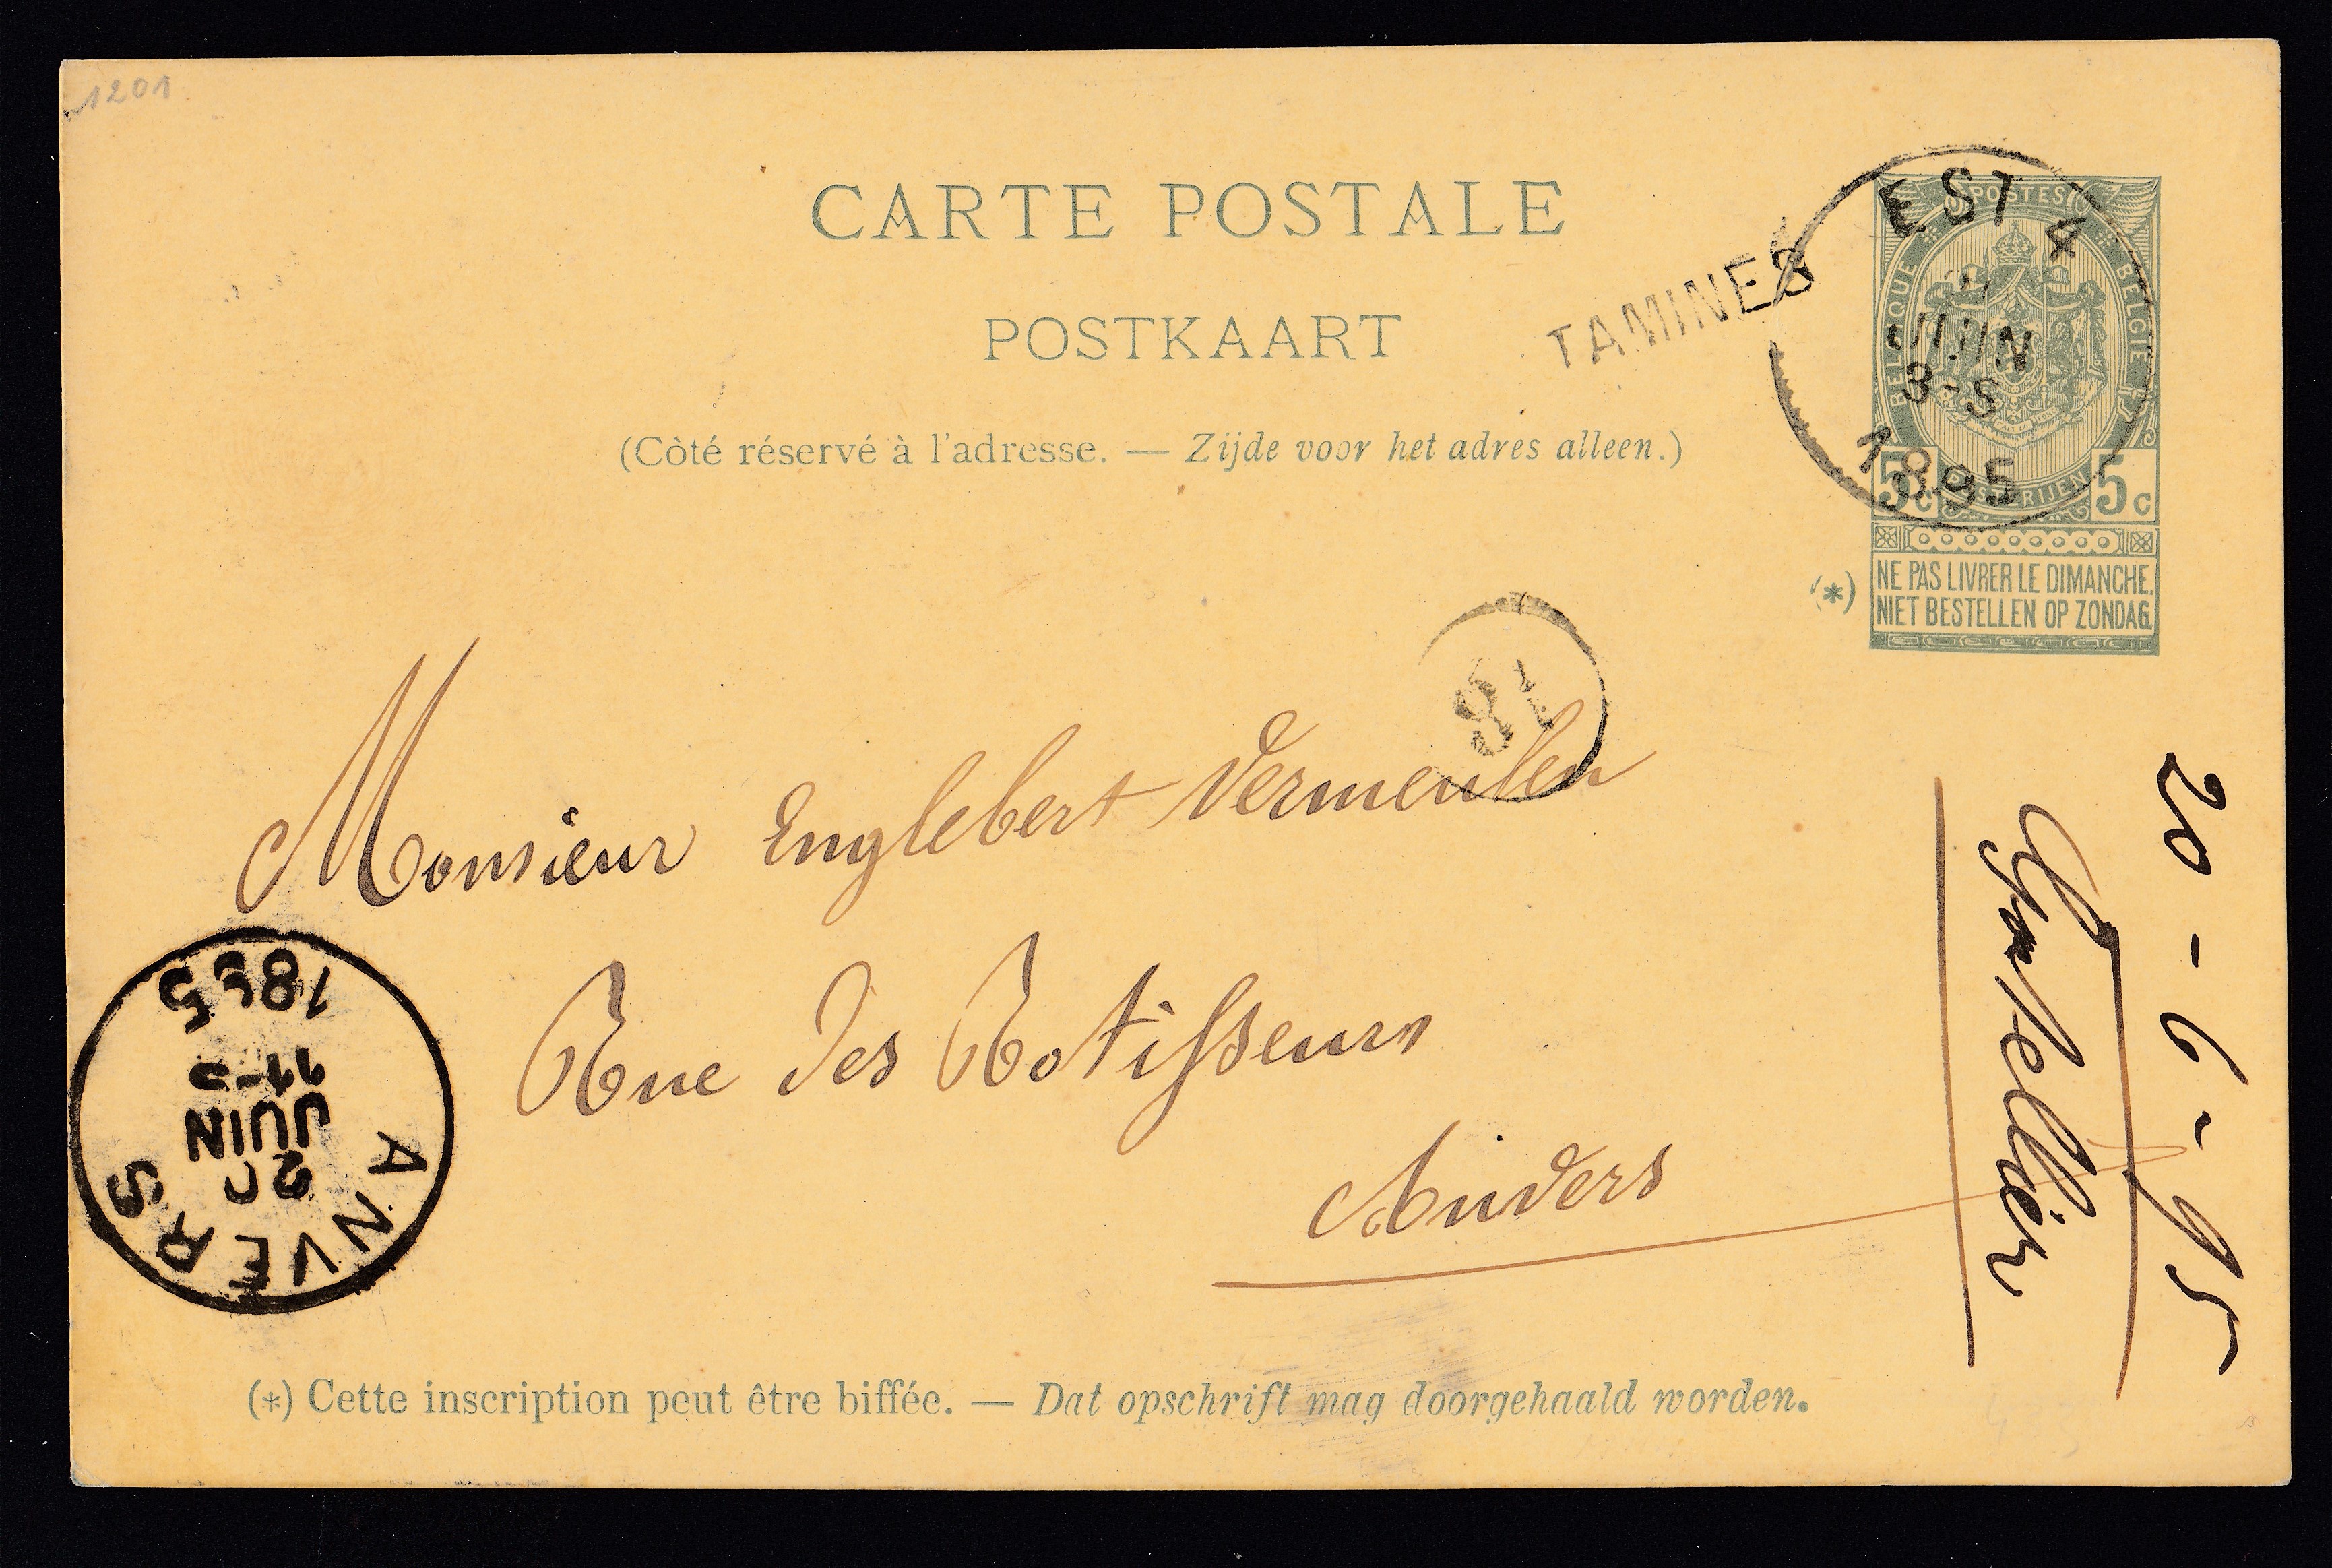 1201
CARTE POSTALE
POSTKAART
(Côté réservé à l'adresse. — Zijde voor het adres alleen.)
TAMINES
EST 4
JUIN
8-S
1895
POSTES
BELGIQUE
BELGIË
POSTERIJEN
5c
5c
(*)
NE PAS LIVRER LE DIMANCHE.
NIET BESTELLEN OP ZONDAG.
Monsieur Englebert Vermeulen
Rue des Rotisseurs
Anvers
ANVERS
20
JUIN
11-
1895
20-6-95
(*) Cette inscription peut être biffée. — Dat opschrift mag doorgehaald worden.